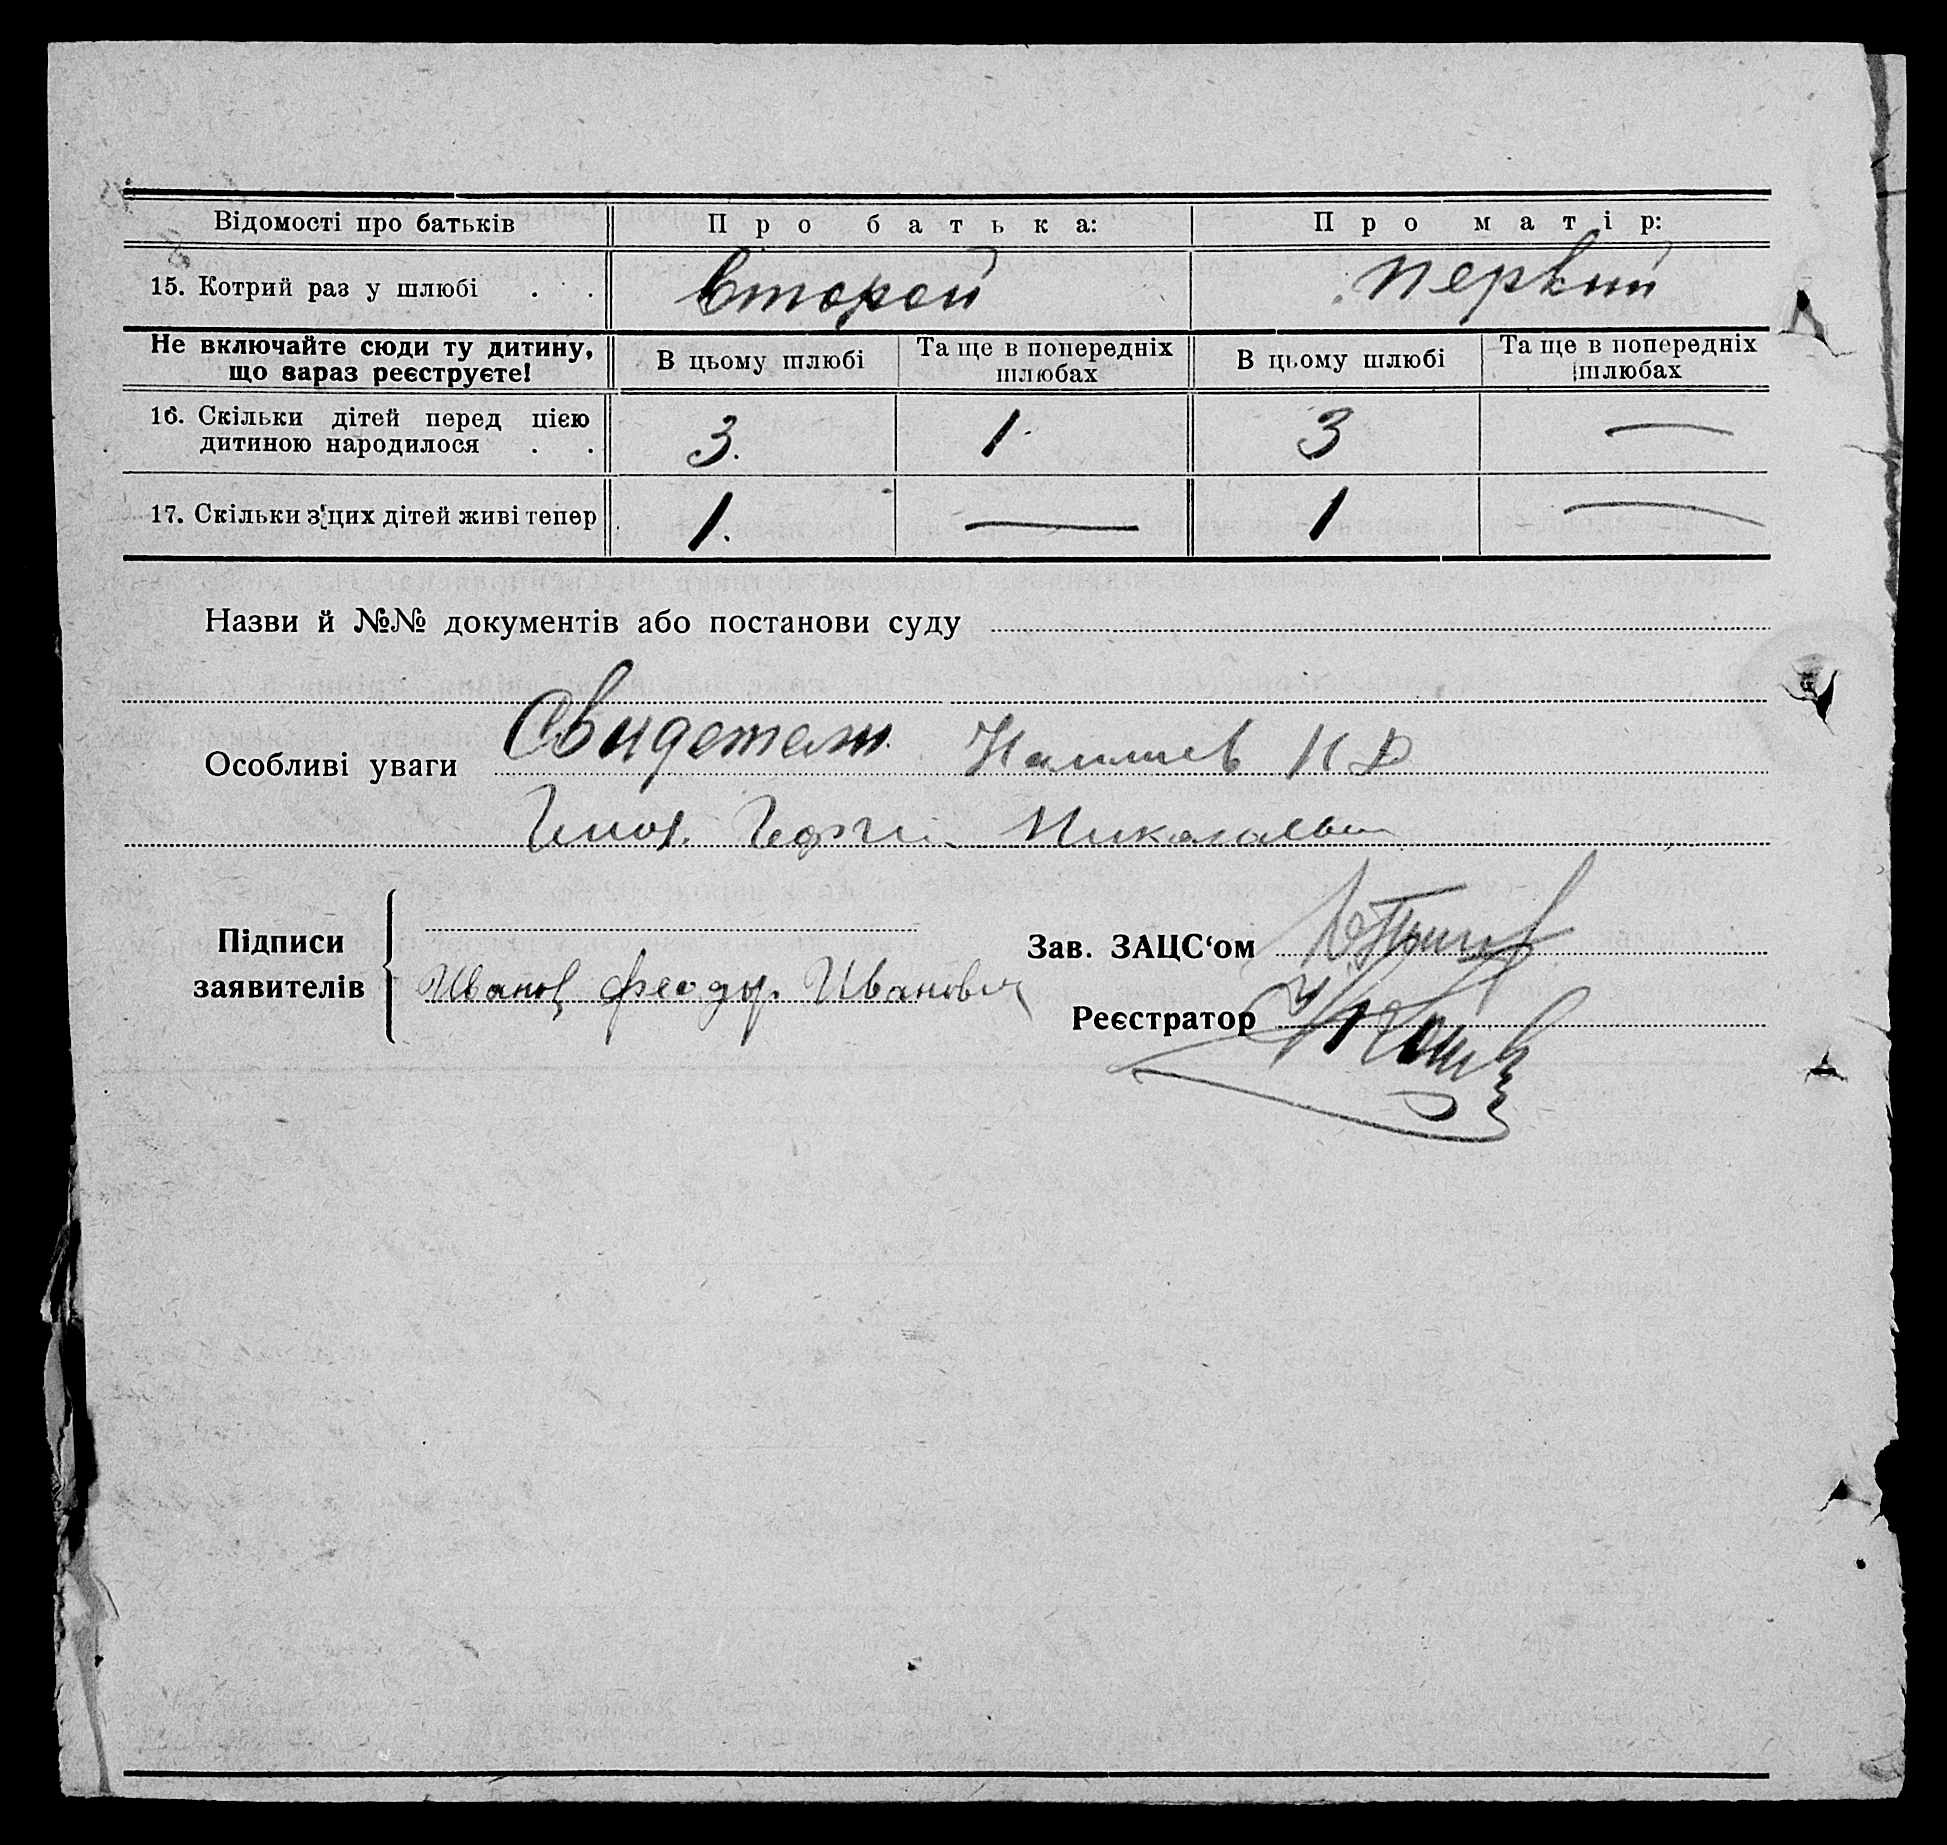 Відомості про батьків Про батька: Про матір:
15. Котрий раз у шлюбі . . второй первый
Не включайте сюди ту дитину, що зараз реєструєте! В цьому шлюбі Та ще в попередніх шлюбах В цьому шлюбі Та ще в попередніх шлюбах
16. Скільки дітей перед цією
дитиною народилося . . 3. 1. 3 —
17. Скільки з цих дітей живі тепер 1. — 1 —
Назви й №№ документів або постанови суду
Особливі уваги Свидетели
Підписи
заявителів Иванов Феодор Иванович
Зав. ЗАЦС‘ом
Реєстратор